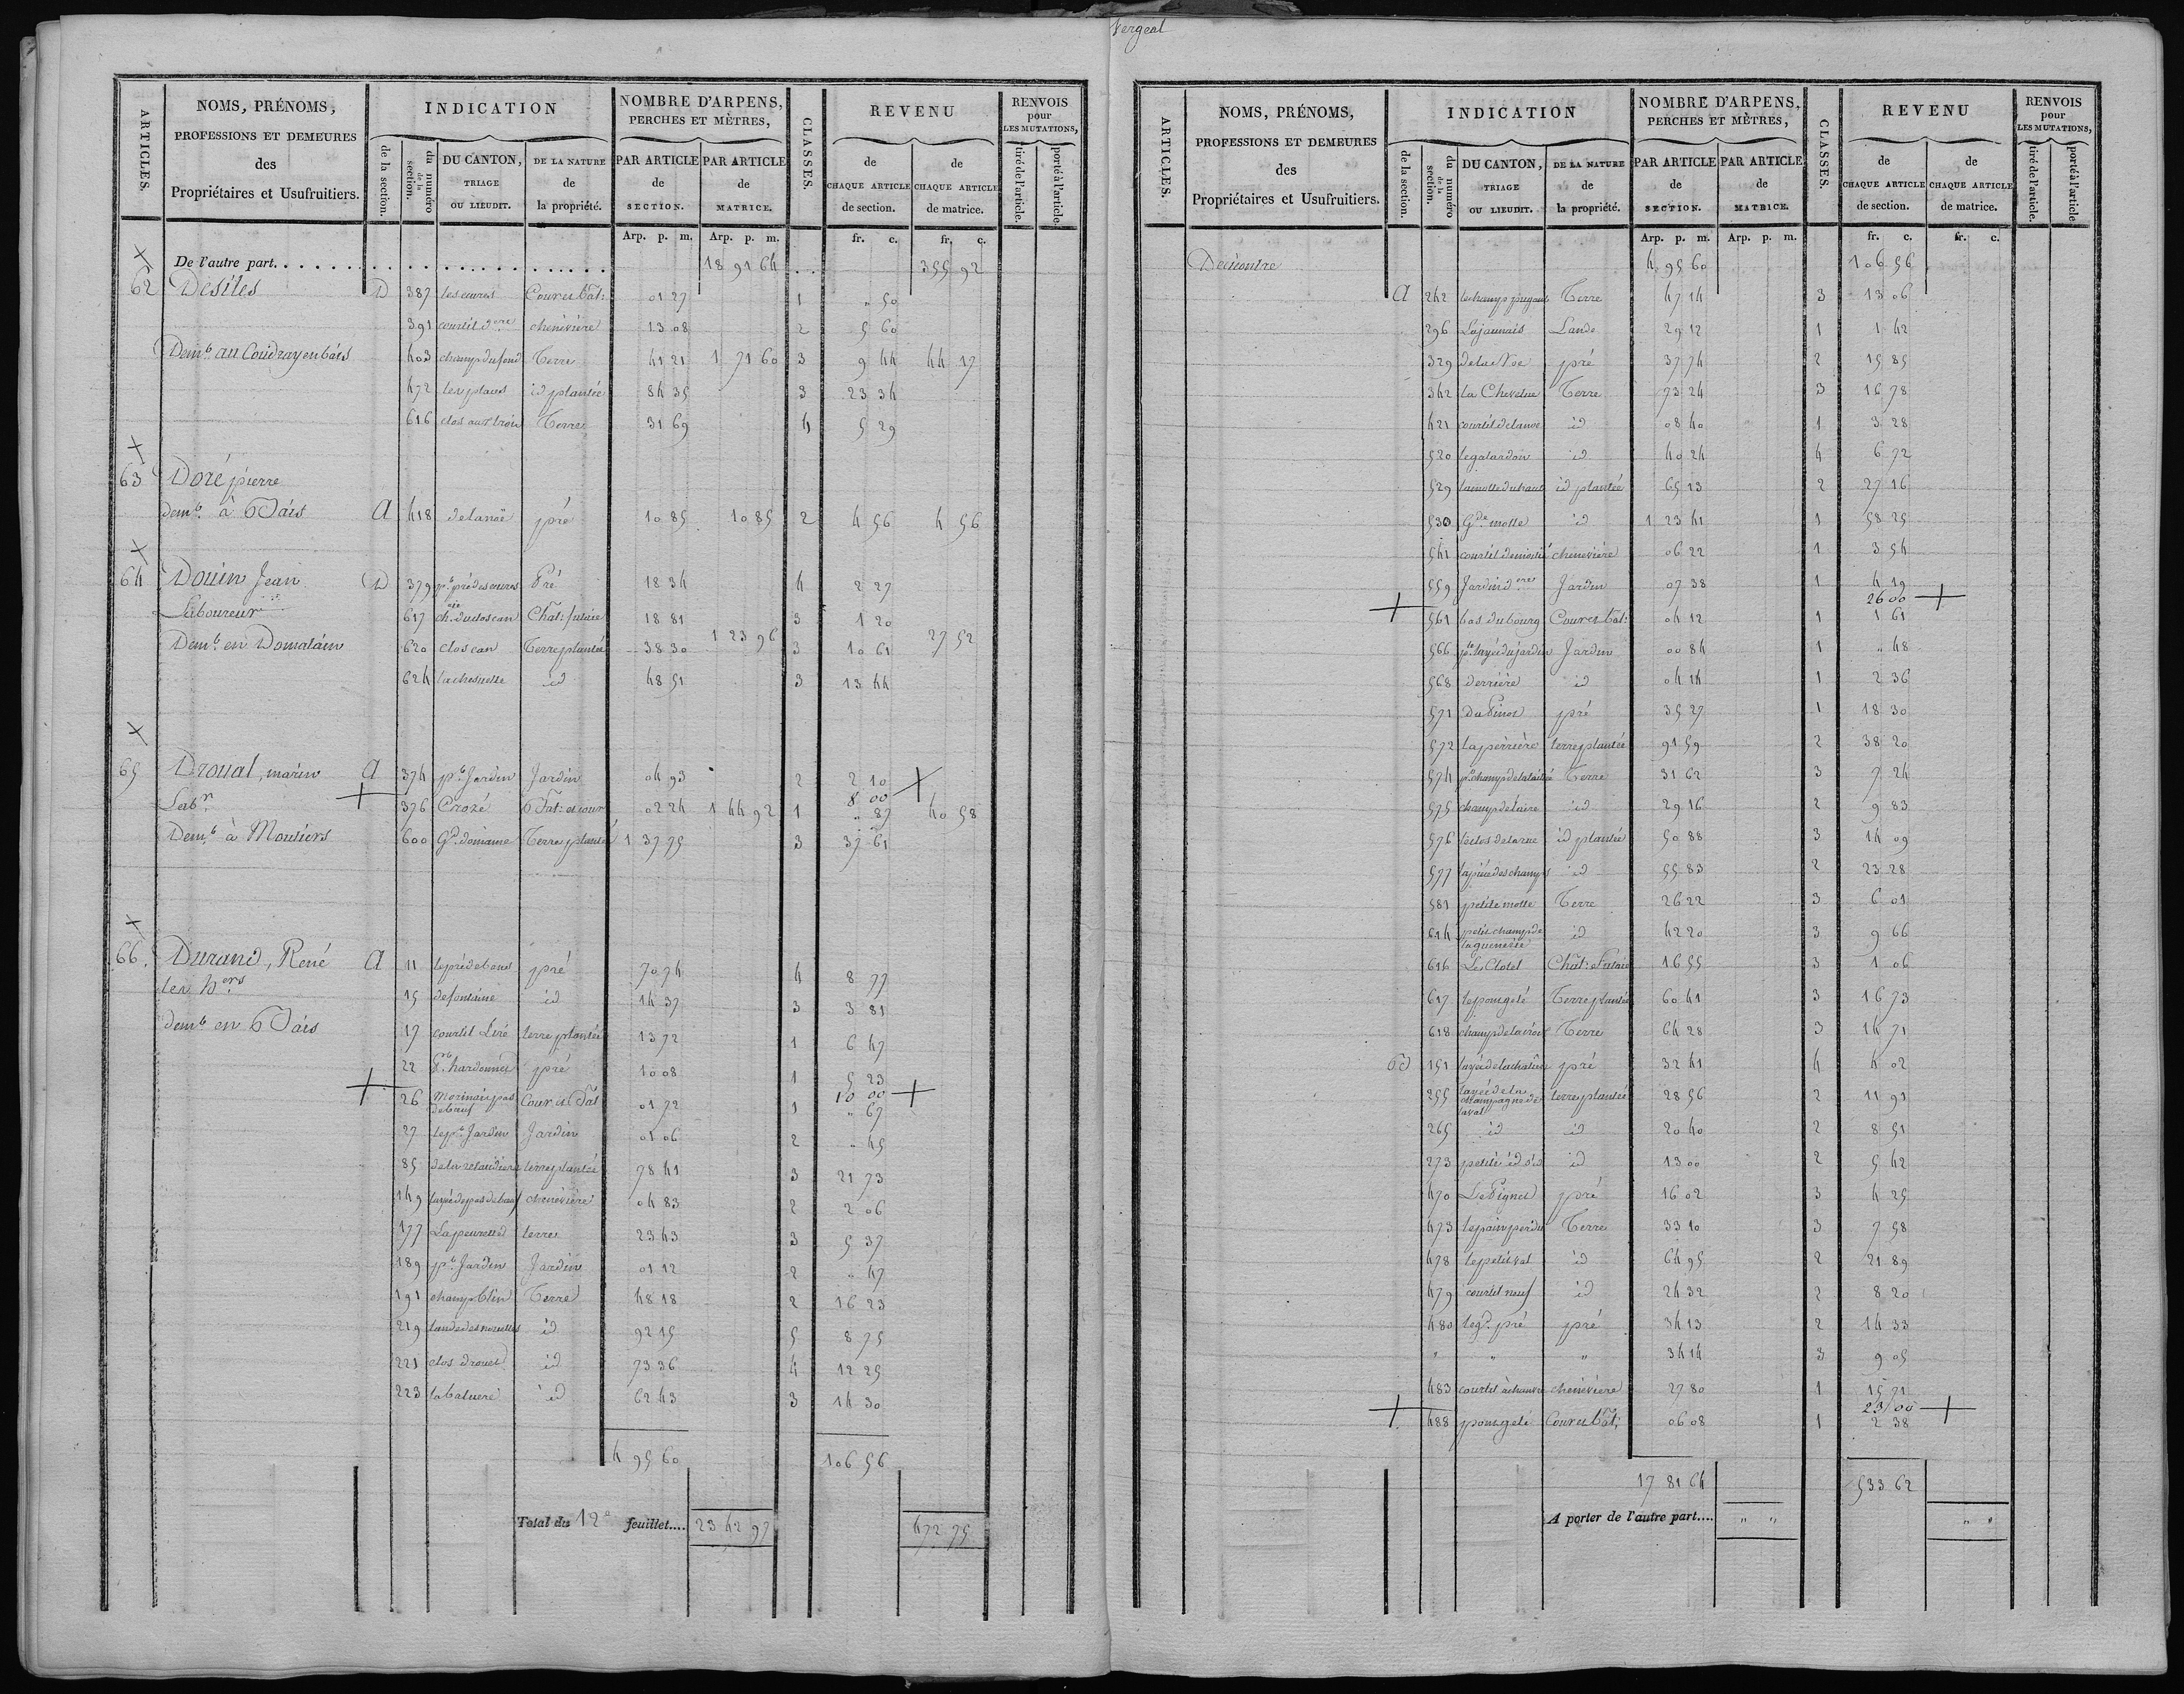 Vergeal
ARTICLES.
NOMS, PRÉNOMS,
PROFESSIONS ET DEMEURES
des
Propriétaires et Usufruitiers.
INDICATION
de la section.
du numéro de la section.
DU CANTON,
TRIAGE
OU LIEUDIT.
DE LA NATURE
de
la propriété.
NOMBRE D'ARPENS,
PERCHES ET MÈTRES,
PAR ARTICLE
de
SECTION.
PAR ARTICLE
de
MATRICE.
CLASSES.
REVENU
de
CHAQUE ARTICLE
de section.
de
CHAQUE ARTICLE
de matrice.
RENVOIS
pour
LES MUTATIONS,
tiré de l'article.
porté à l'article.
Arp. p. m. Arp. p. m. fr. c. fr. c.
De l'autre part. 18 91 64 355 92
62 Desiles D 387 Cour et bât: 01 27 1 " 50
391 courtil d.ere chenèvière 13 08 2 5 60
Dem.t au Coudray en bais 403 champ du fond Terre 41 21 1 71 60 3 9 44 44 17
472 les places id plantée 84 35 3 23 34
616 clos aux trois Terre 31 69 4 5 29
63 Doré pierre
dem.t à Bais A 418 de lanoë pré 10 85 10 85 2 4 56 4 56
64 Douin Jean D 379 p.t pré des cures Pré 18 34 4 2 27
Laboureur 617 ch. du clos can Chât: futaie 18 81 3 1 20
Dem.t en Domalain 620 clos can Terre plantée 38 30 1 23 96 3 10 61 27 52
624 la chesnotte id 48 51 3 13 44
65 Droual, marin A 374 p.t Jardin Jardin 04 93 2 2 10
8 00
Lab.r 376 Crozé Bât: et cour 02 24 1 44 92 1 " 87 40 58
Dem.t à Moutiers 600 G.d domaine Terre plantée 1 37 75 3 37 61
66. Durand, René A 11 le pré de bas pré 70 74 4 8 77
les h.ers 15 de fontaine id 14 37 3 3 81
dem.t en Bais 17 courtil Liré terre plantée 13 72 1 6 47
22 p.t hardonnés pré 10 08 1 5 23
10 00
26 Morinais pas de bœuf Cour et Bât 01 72 1 " 67
27 le p.t Jardin Jardin 01 06 2 " 45
85 de la renaudiere terre plantée 78 41 3 21 73
149 layée de pas de bœuf chenèvière 04 83 2 2 06
177 terre 23 43 3 5 37
189 p.t Jardin Jardin 01 12 2 " 47
191 champ blin Terre 48 18 2 16 23
219 id 92 15 5 8 75
221 clos drouet id 73 36 4 12 25
223 la baluere id 62 43 3 14 30
4 95 60 106 56
Total du 12e feuillet.... 23 42 97 472 75
ARTICLES.
NOMS, PRÉNOMS,
PROFESSIONS ET DEMEURES
des
Propriétaires et Usufruitiers.
INDICATION
de la section.
du numéro de la section.
DU CANTON,
TRIAGE
OU LIEUDIT.
DE LA NATURE
de
la propriété.
NOMBRE D'ARPENS,
PERCHES ET MÈTRES,
PAR ARTICLE
de
SECTION.
PAR ARTICLE
de
MATRICE.
CLASSES.
REVENU
de
CHAQUE ARTICLE
de section.
de
CHAQUE ARTICLE
de matrice.
RENVOIS
pour
LES MUTATIONS,
tiré de l'article.
porté à l'article.
Arp. p. m. Arp. p. m. fr. c. fr. c.
Decicontre 4 95 60 106 56
A 242 Terre 47 14 3 13 06
296 Lajaunais Lande 29 12 1 1 42
329 de la Noe pré 37 74 2 15 85
342 la Chevelue Terre 73 24 3 16 78
421 courtil de lanoe id 08 40 1 3 28
520 le galardon id 40 24 4 6 72
529 la motte du haut id plantée 65 13 2 27 16
530 G.de motte id 1 23 41 1 58 25
541 courtil demoitié chenevière 06 22 1 3 54
559 Jardin d.ere Jardin 07 38 1 4 19
26 00
561 bas du bourg Cour et bât: 04 12 1 1 61
566 p.te layée du jardin Jardin 00 84 1 " 48
568 derrière id 04 14 1 2 36
571 Du Pinot pré 35 27 1 18 30
572 la perrière terre plantée 91 59 2 38 20
574 Terre 31 62 3 7 24
575 champ de laire id 29 16 2 9 83
576 id plantée 50 88 3 14 09
577 la pièce des champs id 55 83 2 23 28
581 petite motte Terre 26 22 3 6 01
614 petit champ de id 42 20 3 9 66
616 Le Clotet Chât: et futaie 16 55 3 1 06
617 le pougelé Terre plantée 60 41 3 16 73
618 champ de la croix Terre 64 28 3 14 71
B 151 pré 32 41 4 4 02
255 layée de la champagne de laval terre plantée 28 56 2 11 91
265 id id 20 40 2 8 51
273 petite id id 13 00 2 5 42
470 Le Pignet pré 16 02 3 4 25
473 le pain perdu Terre 33 10 3 7 58
478 le petit val id 64 95 2 21 89
479 courtil neuf id 24 32 2 8 20
480 le g.d pré pré 34 13 2 14 33
" " " 34 14 3 9 05
483 courtil à chanvre chenevière 27 80 1 15 71
23 00
488 pougelé Cour et bât: 06 08 1 2 38
17 81 64 533 62
A porter de l'autre part.... " " " "